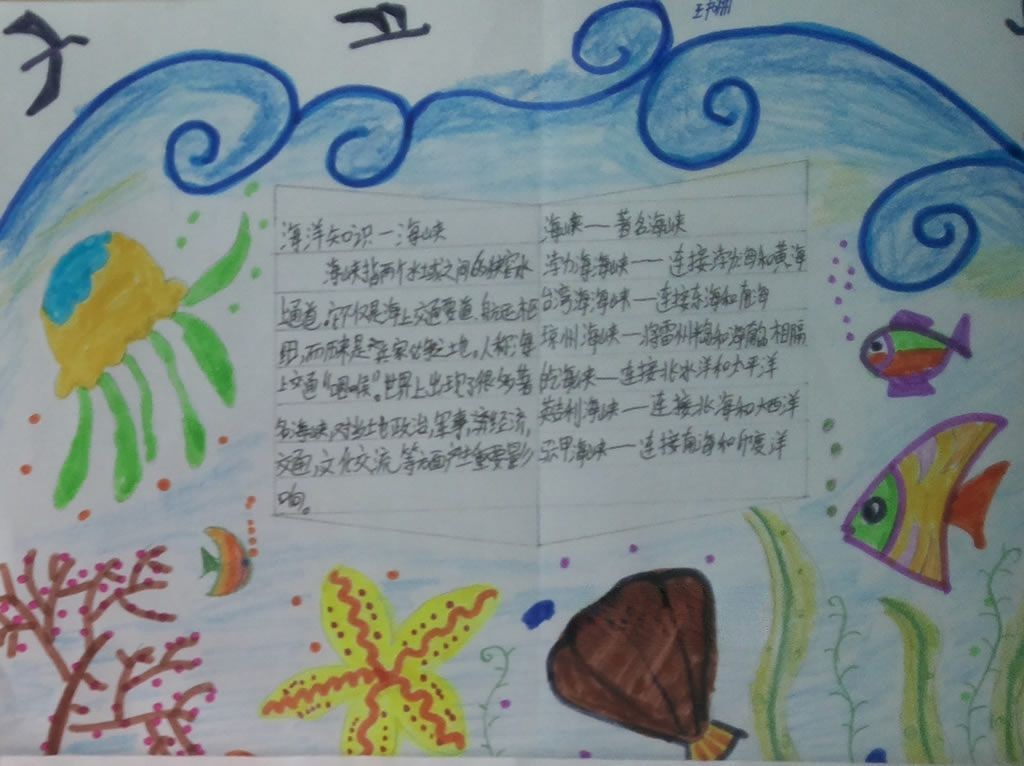 海洋知识—海峡
海峡指两个水域之间的狭窄水
上通道,它不仅是海上交通要道、航运枢
纽,而历来是兵家必争之地。人称海
上交通“咽喉”。世界上出现了很多著
名海峡,对当地政治,军事,经济流,
交通,文化交流,等方面产生重要影
响。
海峡——著名海峡
渤海海峡——连接渤海和黄海
台湾海峡——连接东海和南海
琼州海峡——将雷州半岛和海南岛相隔
海峡——连接北冰洋和太平洋
英吉利海峡——连接北海和大西洋
海峡——连接南海和印度洋